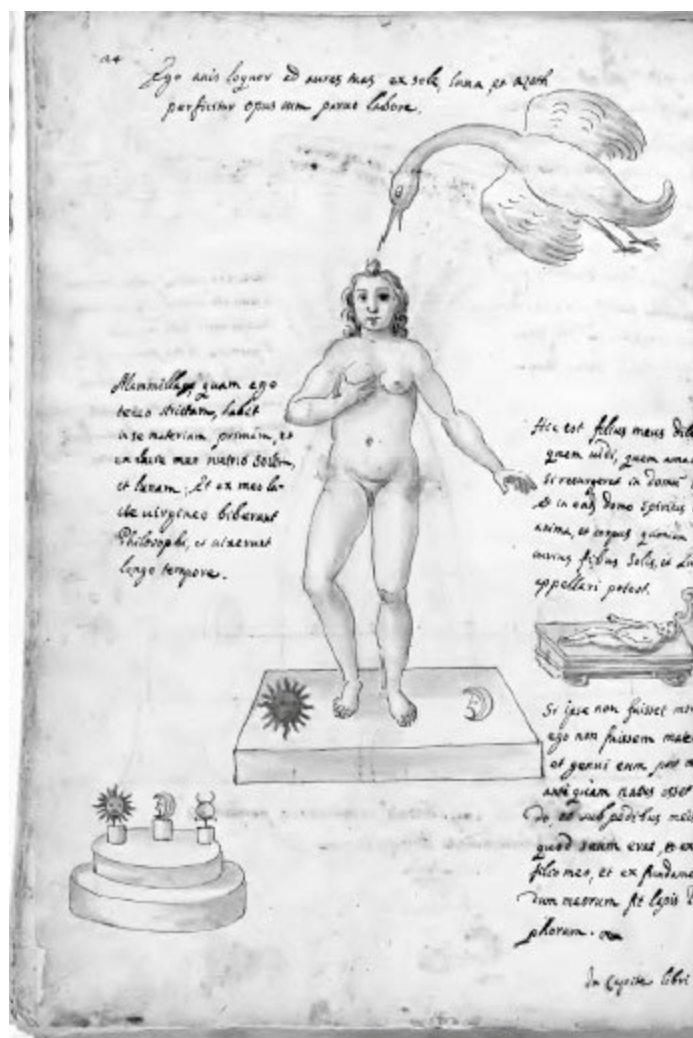 24
Ego avis loquor ad aures tuas ex sole, luna, et azoth
perficitur opus cum parvo labore.
Mammilla, quam ego
teneo strictam, habet
in se materiam primam, et
ex lacte meo nutrio Solem,
et lunam; Et ex meo la-
cte virgineo biberunt
Philosophi, et vixerunt
longo tempore.
Hic est filius meus dile
quem vidi, quem amav
si resurgeret in domu
et in ea domo spiritus
anima, et corpus quoniam
filius Solis, et Lu
appellari potest.
Si ipse non fuisset mor
ego non fuissem mate
et genui eum post m
antequam natus esset
et sub pedibus meis
quod suum erat, et ex
filio meo, et ex fundame
fit lapis
phorum.
In capite libri